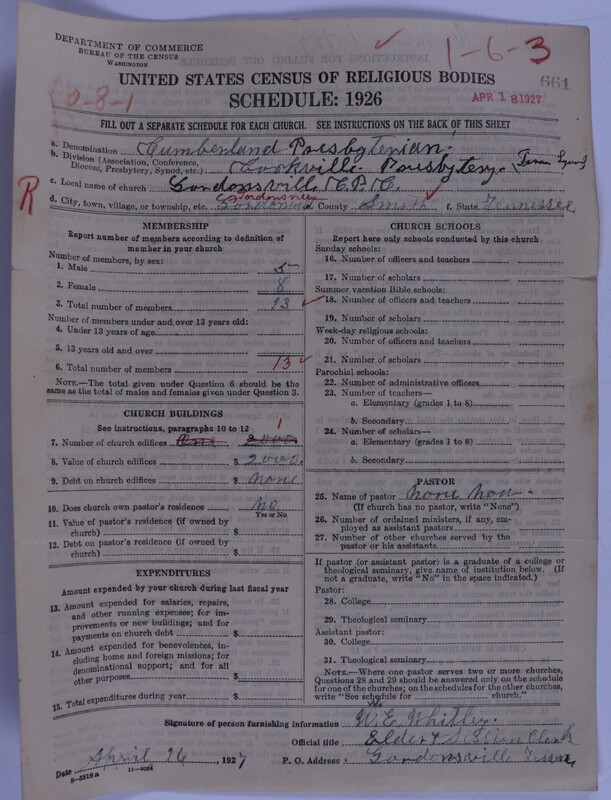 DEPARTMENT OF COMMERCE
BUREAU OF THE CENSUS
WASHINGTON
1-6-3
661
UNITED STATES CENSUS OF RELIGIOUS BODIES
SCHEDULE: 1926
APR 18 1927
0-8-1
FILL OUT A SEPARATE SCHEDULE FOR EACH CHURCH. SEE INSTRUCTIONS ON THE BACK OF THIS SHEET
a. Denomination Cumberland Presbyterian.
b. Division (Association, Conference, Diocese, Presbytery, Synod, etc.) Cookville Presbytery. (Tenn Synod)
R
c. Local name of church Gordonsville C.P.C.
d. City, town, village, or township, etc. Gordonsville e. County Smith f. State Tennessee
MEMBERSHIP
Report number of members according to definition of
member in your church
Number of members, by sex:
1. Male 5
2. Female 8
3. Total number of members 13
Number of members under and over 13 years old:
4. Under 13 years of age
5. 13 years old and over
6. Total number of members 13
NOTE.—The total given under Question 6 should be the
same as the total of males and females given under Question 3.
CHURCH BUILDINGS
See instructions, paragraphs 10 to 12
1
7. Number of church edifices One 2000
8. Value of church edifices $ 2000.
9. Debt on church edifices $ none
10. Does church own pastor's residence No
Yes or No
11. Value of pastor's residence (if owned by
church) $
12. Debt on pastor's residence (if owned by
church) $
EXPENDITURES
Amount expended by your church during last fiscal year
13. Amount expended for salaries, repairs,
and other running expenses; for im-
provements or new buildings; and for
payments on church debt $
14. Amount expended for benevolences, in-
cluding home and foreign missions; for
denominational support; and for all
other purposes $
15. Total expenditures during year $
CHURCH SCHOOLS
Report here only schools conducted by this church
Sunday schools:
16. Number of officers and teachers
17. Number of scholars
Summer vacation Bible schools:
18. Number of officers and teachers
19. Number of scholars
Week-day religious schools:
20. Number of officers and teachers
21. Number of scholars
Parochial schools:
22. Number of administrative officers
23. Number of teachers—
a. Elementary (grades 1 to 8)
b. Secondary
24. Number of scholars—
a. Elementary (grades 1 to 8)
b. Secondary
PASTOR
25. Name of pastor none
(If church has no pastor, write "None")
26. Number of ordained ministers, if any, em-
ployed as assistant pastors
27. Number of other churches served by the
pastor or his assistants
If pastor (or assistant pastor) is a graduate of a college or
theological seminary, give name of institution below. (If
not a graduate, write "No" in the space indicated.)
Pastor:
28. College
29. Theological seminary
Assistant pastor:
30. College
31. Theological seminary
NOTE.—Where one pastor serves two or more churches,
Questions 28 and 29 should be answered only on the schedule
for one of the churches; on the schedules for the other churches,
write "See schedule for church."
Signature of person furnishing information W. E. Whitley.
Official title Elder & Session Clerk
Date April 16, 1927 P. O. Address Gordonsville Tenn,
8-5518a 11-9064